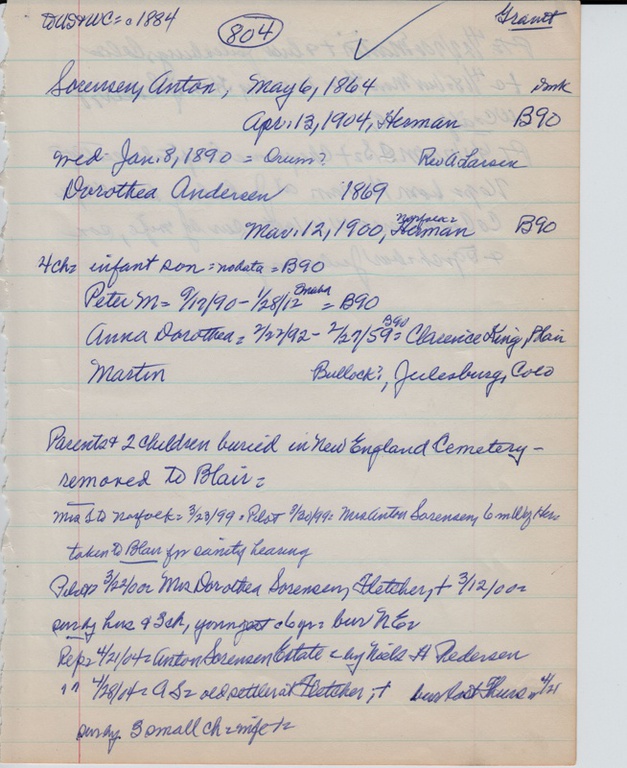 to US & WC = c 1884
804
Grant
Sorensen, Anton, May 6, 1864 Dmk
Apr. 13, 1904, Herman B90
med Jan. 8, 1890 = Orum? Rev A Larsen
Dorothea Andersen 1869
Mar. 12, 1900, Herman B90
4 ch = infant son = no data = B90
Peter M = 9/12/90 - 1/28/12 Omaha = B90
Anna Dorothea = 2/27/92 - 2/27/59 = B90 Clarence King, Blair
Martin Bullock?, Julesburg, Colo
Parents & 2 children buried in New England Cemetery -
removed to Blair =
Mrs S to Norfolk = 3/23/99 = Pilot 3/30/99 = Mrs Anton Sorensen, 6 m W of Her=
taken to Blair for sanity hearing
Pilot 3/22/00 = Mrs Dorothea Sorensen, Fletcher, + 3/12/00 =
surv by hus & 3 ch, youngest 6 yr = bur N E =
Rep = 4/21/04 = Anton Sorensen Estate = by Niels H Pedersen
" " 4/28/04 = A S = old settler at Fletcher, + bur last Thurs = 4/21
surv by 3 small ch = wife +